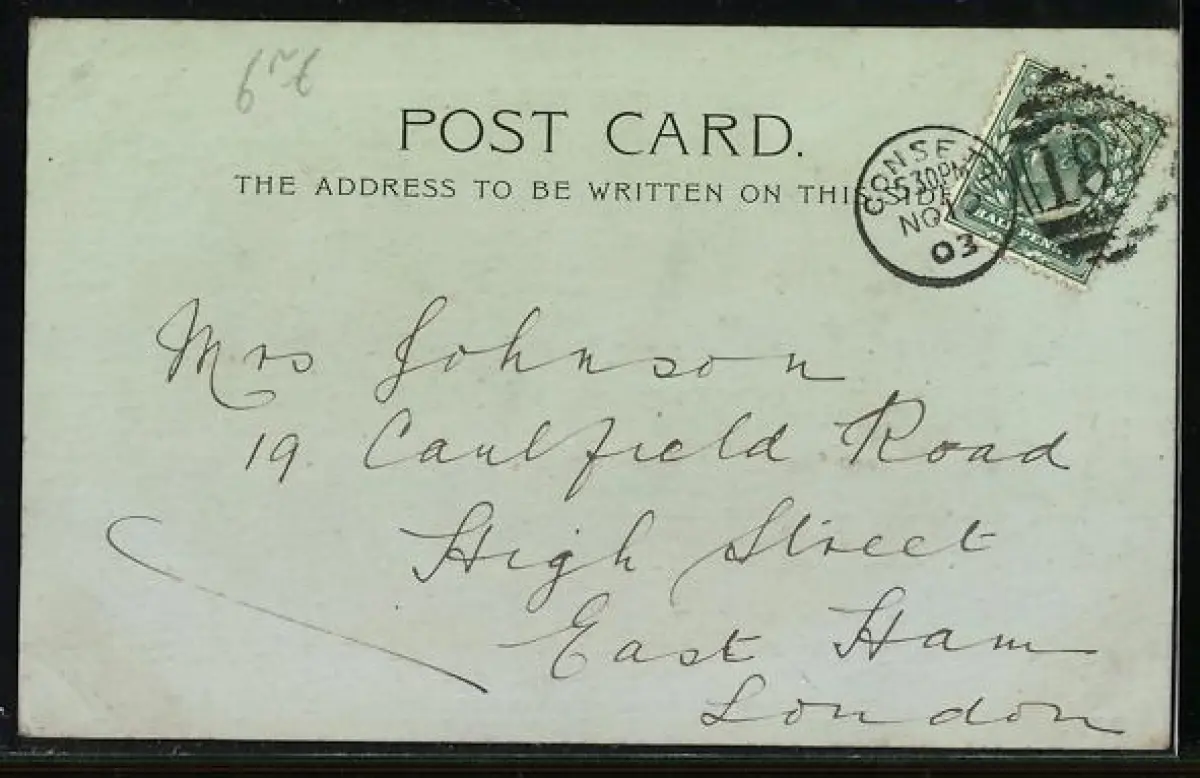 6
POST CARD.
THE ADDRESS TO BE WRITTEN ON THIS SIDE
CONSETT
5 30 PM
NO
03
18
HALF PENNY
Mrs Johnson
19 Caulfield Road
High Street
East Ham
London